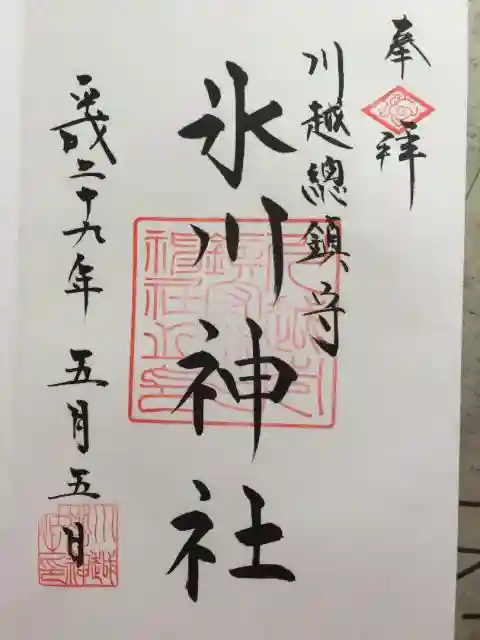 奉拝
川越總鎮守
氷川神社
平成二十九年五月五日